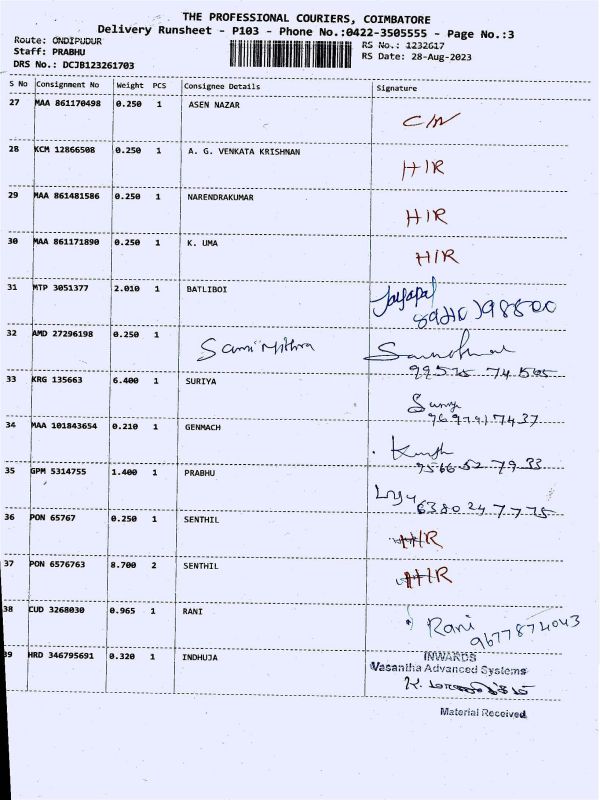 THE PROFESSIONAL COURIERS, COIMBATORE
Delivery Runsheet - P103 - Phone No.:0422-3505555 - Page No.:3
Route: ONDIPUDUR
RS No.: 1232617
Staff: PRABHU
RS Date: 28-Aug-2023
DRS No.: DCJB123261703
S No Consignment No Weight PCS Consignee Details Signature
27 MAA 861170498 0.250 1 ASEN NAZAR
28 KCM 12866508 0.250 1 A. G. VENKATA KRISHNAN H/R
29 MAA 861481586 0.250 1 NARENDRAKUMAR H/R
30 MAA 861171890 0.250 1 K. UMA H/R
31 MTP 3051377 2.010 1 BATLIBOI Jayapal
32 AMD 27296198 0.250 1
33 KRG 135663 6.400 1 SURIYA
34 MAA 101843654 0.210 1 GENMACH
9566 52 7933
35 GPM 5314755 1.400 1 PRABHU
6380247775
36 PON 65767 0.250 1 SENTHIL H/R
37 PON 6576763 8.700 2 SENTHIL H/R
38 CUD 3268030 0.965 1 RANI Rani
9677874043
39 HRD 346795691 0.320 1 INDHUJA INWARDS
Vasantha Advanced Systems
Material Received